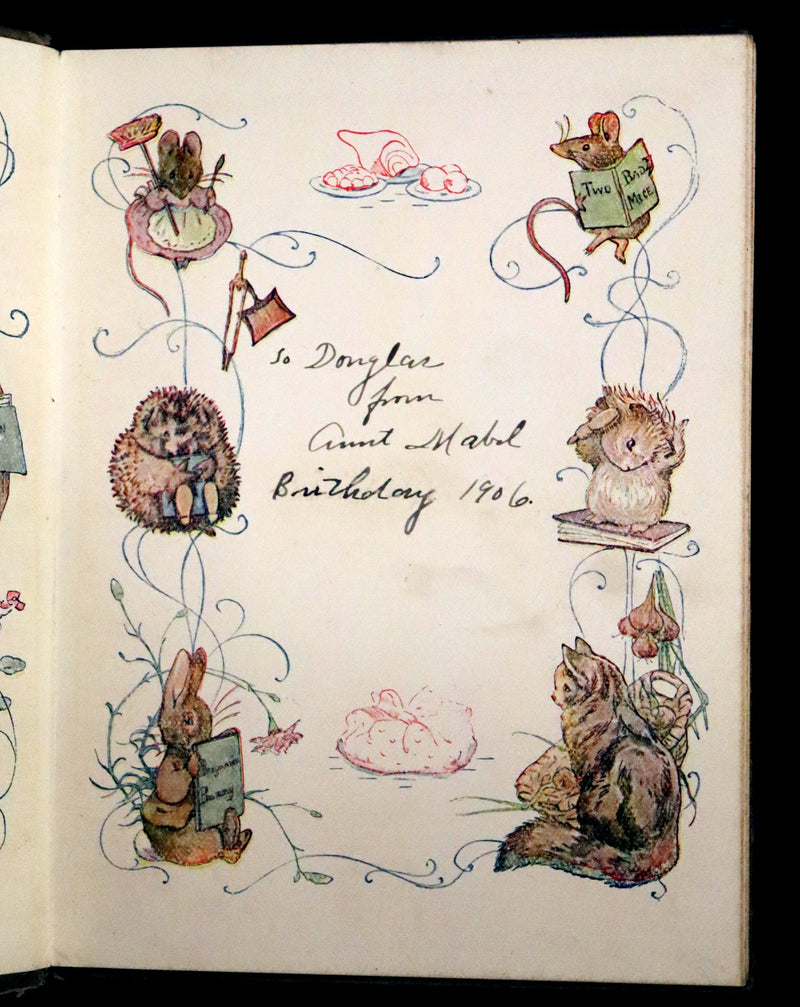 Two Bad
Mice
To Douglas
from
Aunt Mabel
Birthday 1906.
Benjamin
Bunny